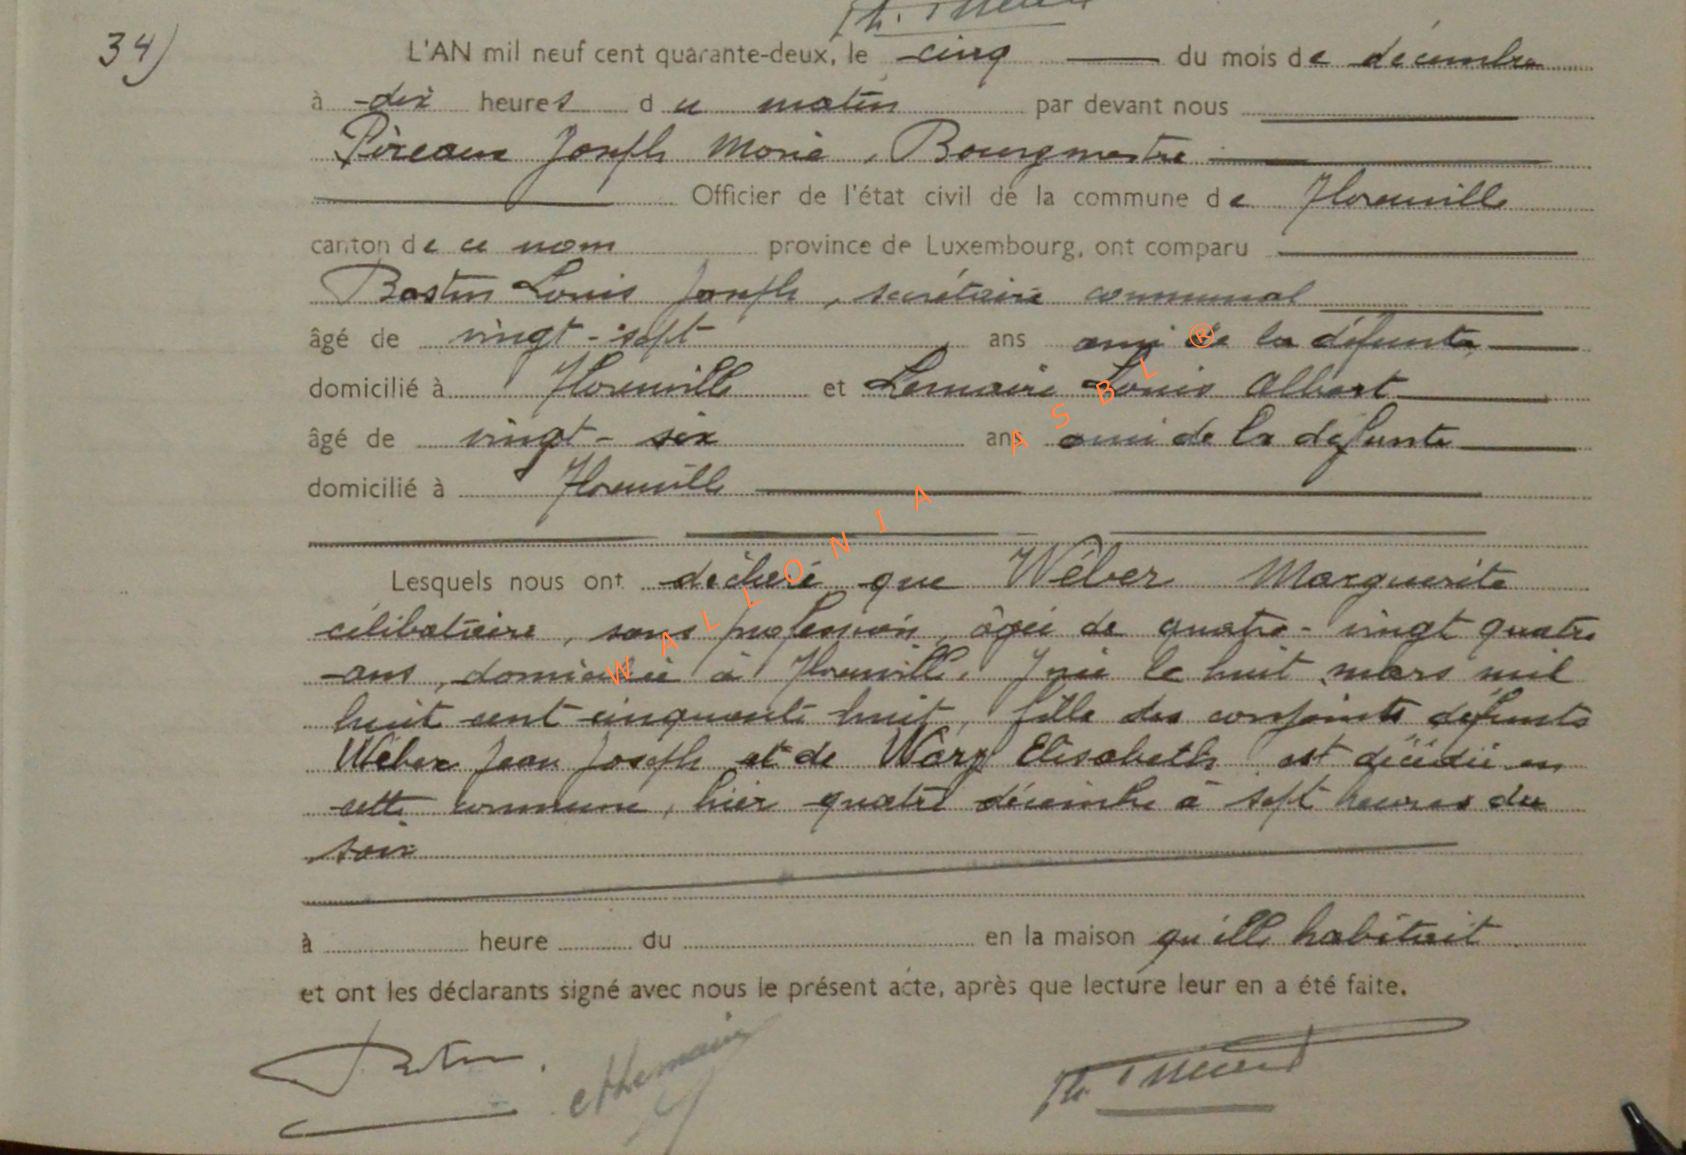 34)
L'AN mil neuf cent quarante-deux, le cinq du mois de décembre
à dix heures du matin par devant nous
Joseph Marie, Bourgmestre
Officier de l'état civil de la commune de Florenville
canton de ce nom province de Luxembourg, ont comparu
Bastin Louis Joseph, secrétaire communal
âgé de vingt-sept ans ami de la défunte
domicilié à Florenville et Lemaire Louis Albert
âgé de vingt-six ans ami de la défunte
domicilié à Florenville
Lesquels nous ont déclaré que Wéber Marguerite
célibataire, sans profession, âgée de quatre-vingt quatre
ans, domiciliée à Florenville, y née le huit mars mil
huit cent cinquante huit, fille des conjoints défunts
Wéber Jean Joseph et de Elisabeth est décédée en
cette commune, hier quatre décembre à sept heures du
soir
à heure du en la maison qu'elle habitait
et ont les déclarants signé avec nous le présent acte, après que lecture leur en a été faite.
Lemaire
WALLONIA ASBL ®